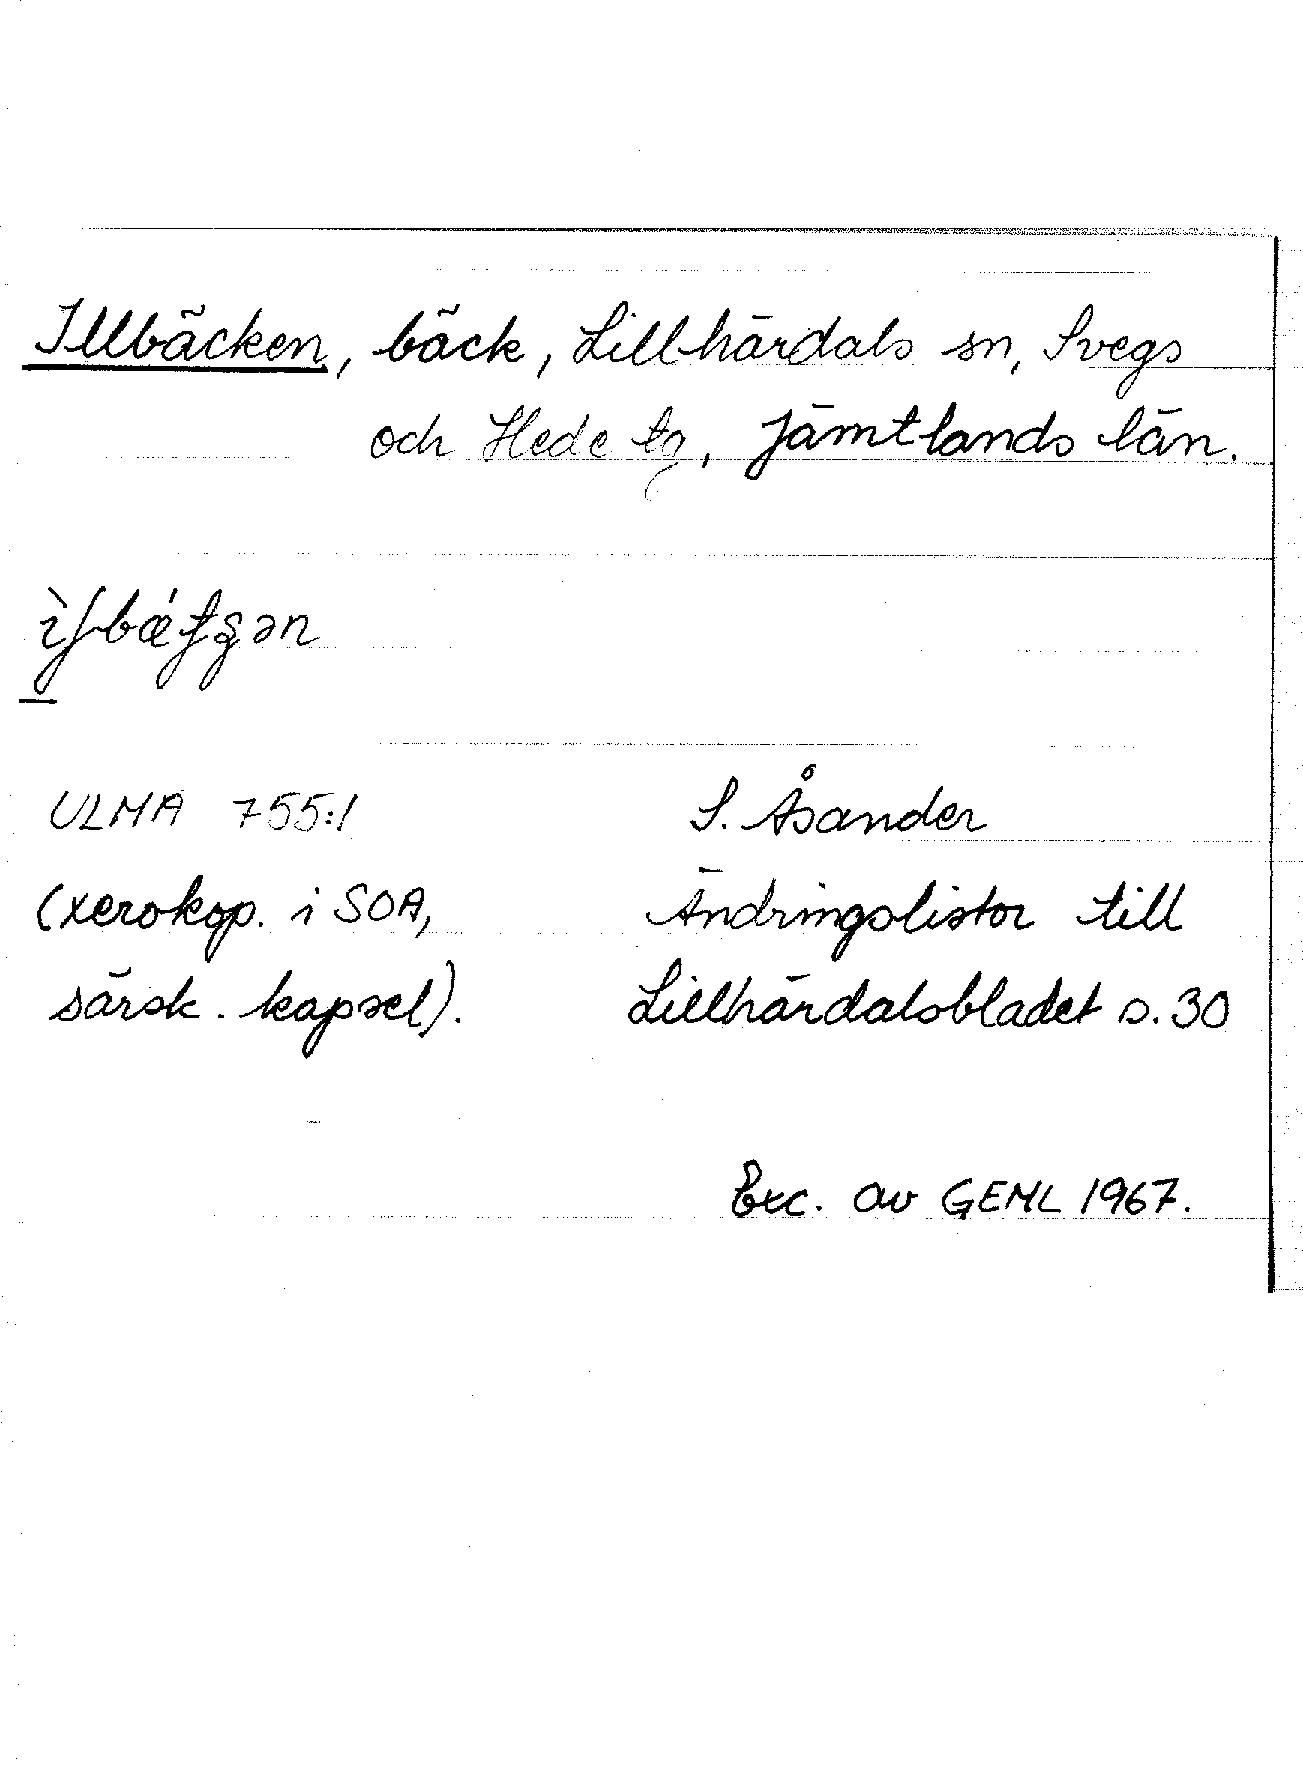 Illbäcken, bäck, Lillhärdals sn, Svegs
och Hede tg, Jämtlands län.
ULMA 755:1
(xerokop. i SOA,
särsk. kapsel).
S. Åsander
Ändringslistor till
Lillhärdalsbladet s. 30
Exc. av GEML 1967.